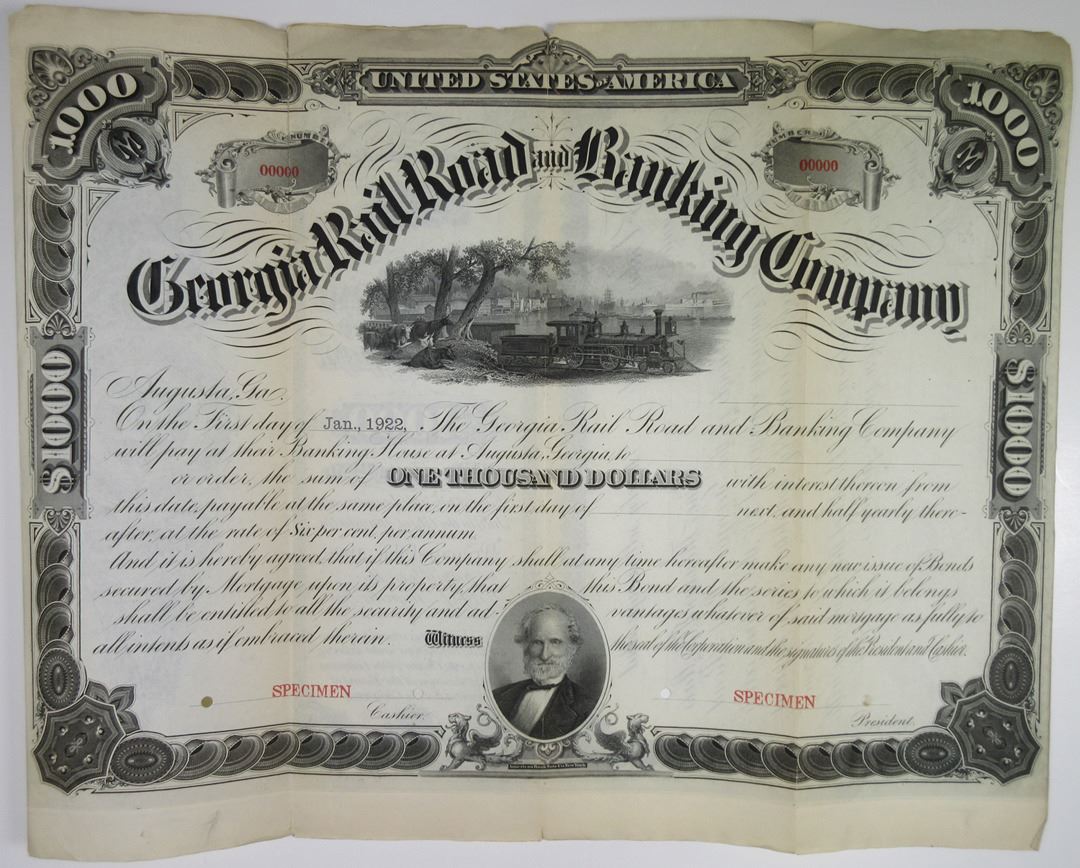 UNITED STATES OF AMERICA
1000
1000
M
M
NUMBER
NUMBER
00000
00000
Georgia Rail Road and Banking Company
$1000
$1000
Augusta, Ga.
On the First day of Jan., 1922, The Georgia Rail Road and Banking Company
will pay at their Banking House at Augusta, Georgia, to
or order, the sum of ONE THOUSAND DOLLARS with interest thereon from
this date, payable at the same place, on the first day of next, and half yearly there-
after, at the rate of Six per cent, per annum.
And it is hereby agreed, that if this Company shall at any time hereafter make any new issue of Bonds
secured by Mortgage upon its property, that this Bond and the series to which it belongs
shall be entitled to all the security and ad- vantages whatever of said mortgage as fully to
all intents as if embraced therein. Witness the seal of the Corporation and the signatures of the President and Cashier.
SPECIMEN
SPECIMEN
Cashier.
President.
American Bank Note Co New York